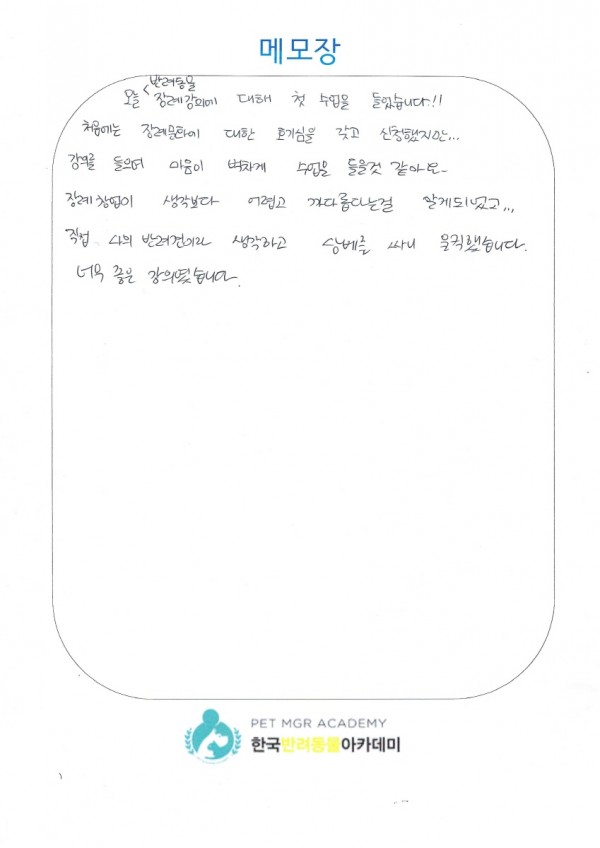 메모장
반려동물
오늘 장례강의에 대해 첫 수업을 들었습니다!!
처음에는 장례문화에 대한 호기심을 갖고 신청했지만...
강의를 들으며 마음이 벅차게 수업을 들을것 같아요~
장례창업이 생각보다 어렵고 까다롭다는걸 알게되었고...
직접 나의 반려견이라 생각하고 싸니 울컥했습니다.
너무 좋은 강의였습니다.
PET MGR ACADEMY
한국반려동물아카데미